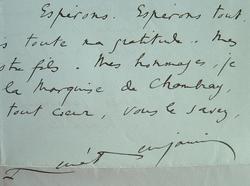 Espérons. Espérons tout
s toute ma gratitude. Mes
tre fils. Mes hommages, je
la Marquise de Chambray,
tout cœur, vous le savez,